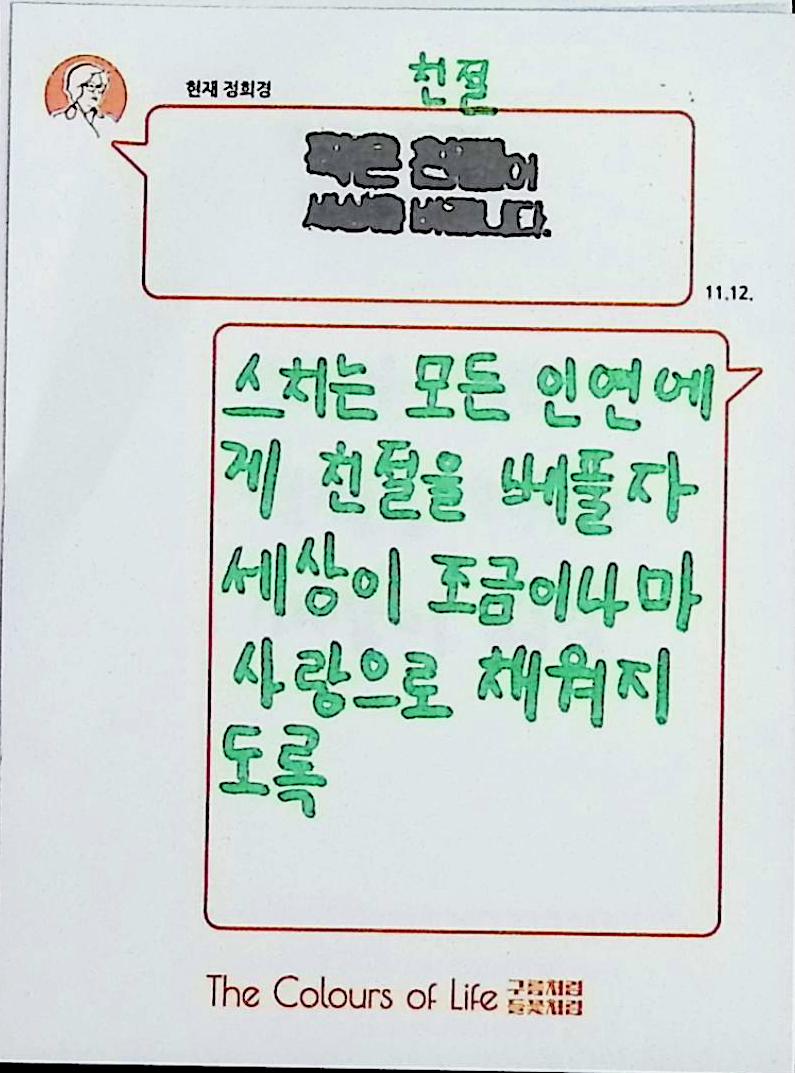 현재 정희경
친절
11.12.
스치는 모든 인연에
게 친절을 베풀자
세상이 조금이나마
사랑으로 채워지
도록
The Colours of Life 구름처럼
들꽃처럼